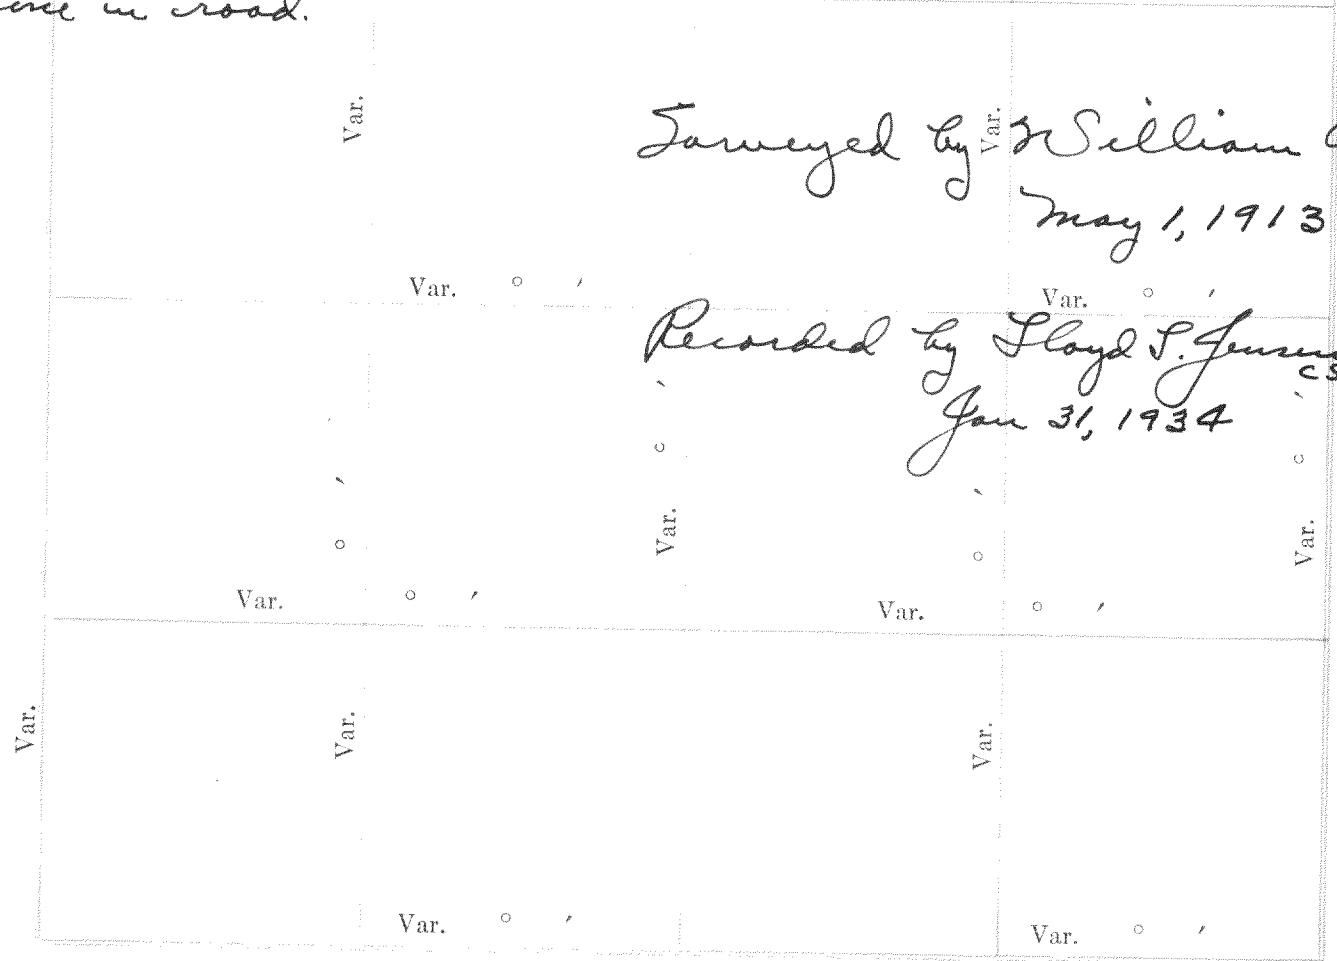 in road.
Var.
Surveyed by William
Var.
May 1, 1913
Var. ° ′
Var. ° ′
Recorded by Lloyd S. Jensen
CS
Jan 31, 1934
′ °
Var.
′ °
Var.
′ °
′ °
Var. ° ′
Var. ° ′
Var.
Var.
Var.
Var. ° ′
Var. ° ′